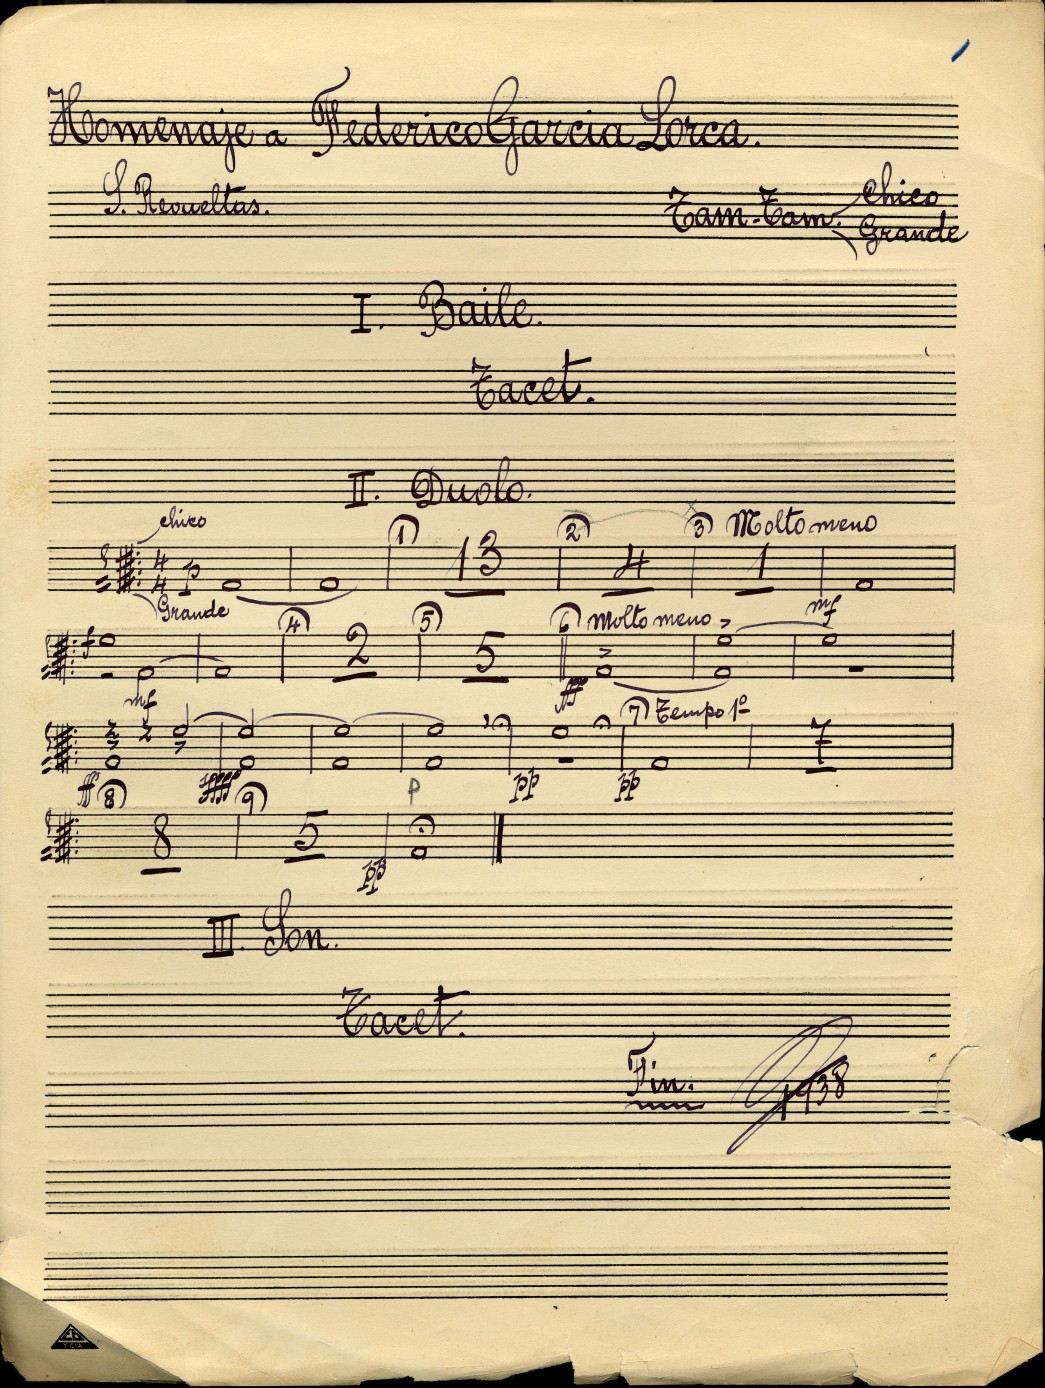 Homenaje a Federico Garcia Lorca.
S. Revueltas.
Tam-Tam. Chico
Grande
I. Baile.
Tacet.
II. Duolo.
chico
1 2 3 Molto meno
4 4 p 13 4 1
Grande mf
f 4 5 6 Molto meno
2 5
mf ff
7 Tempo 1º
7
ff ffff p pp pp
8 9
8 5
pp
III. Son.
Tacet.
Fin. 1938